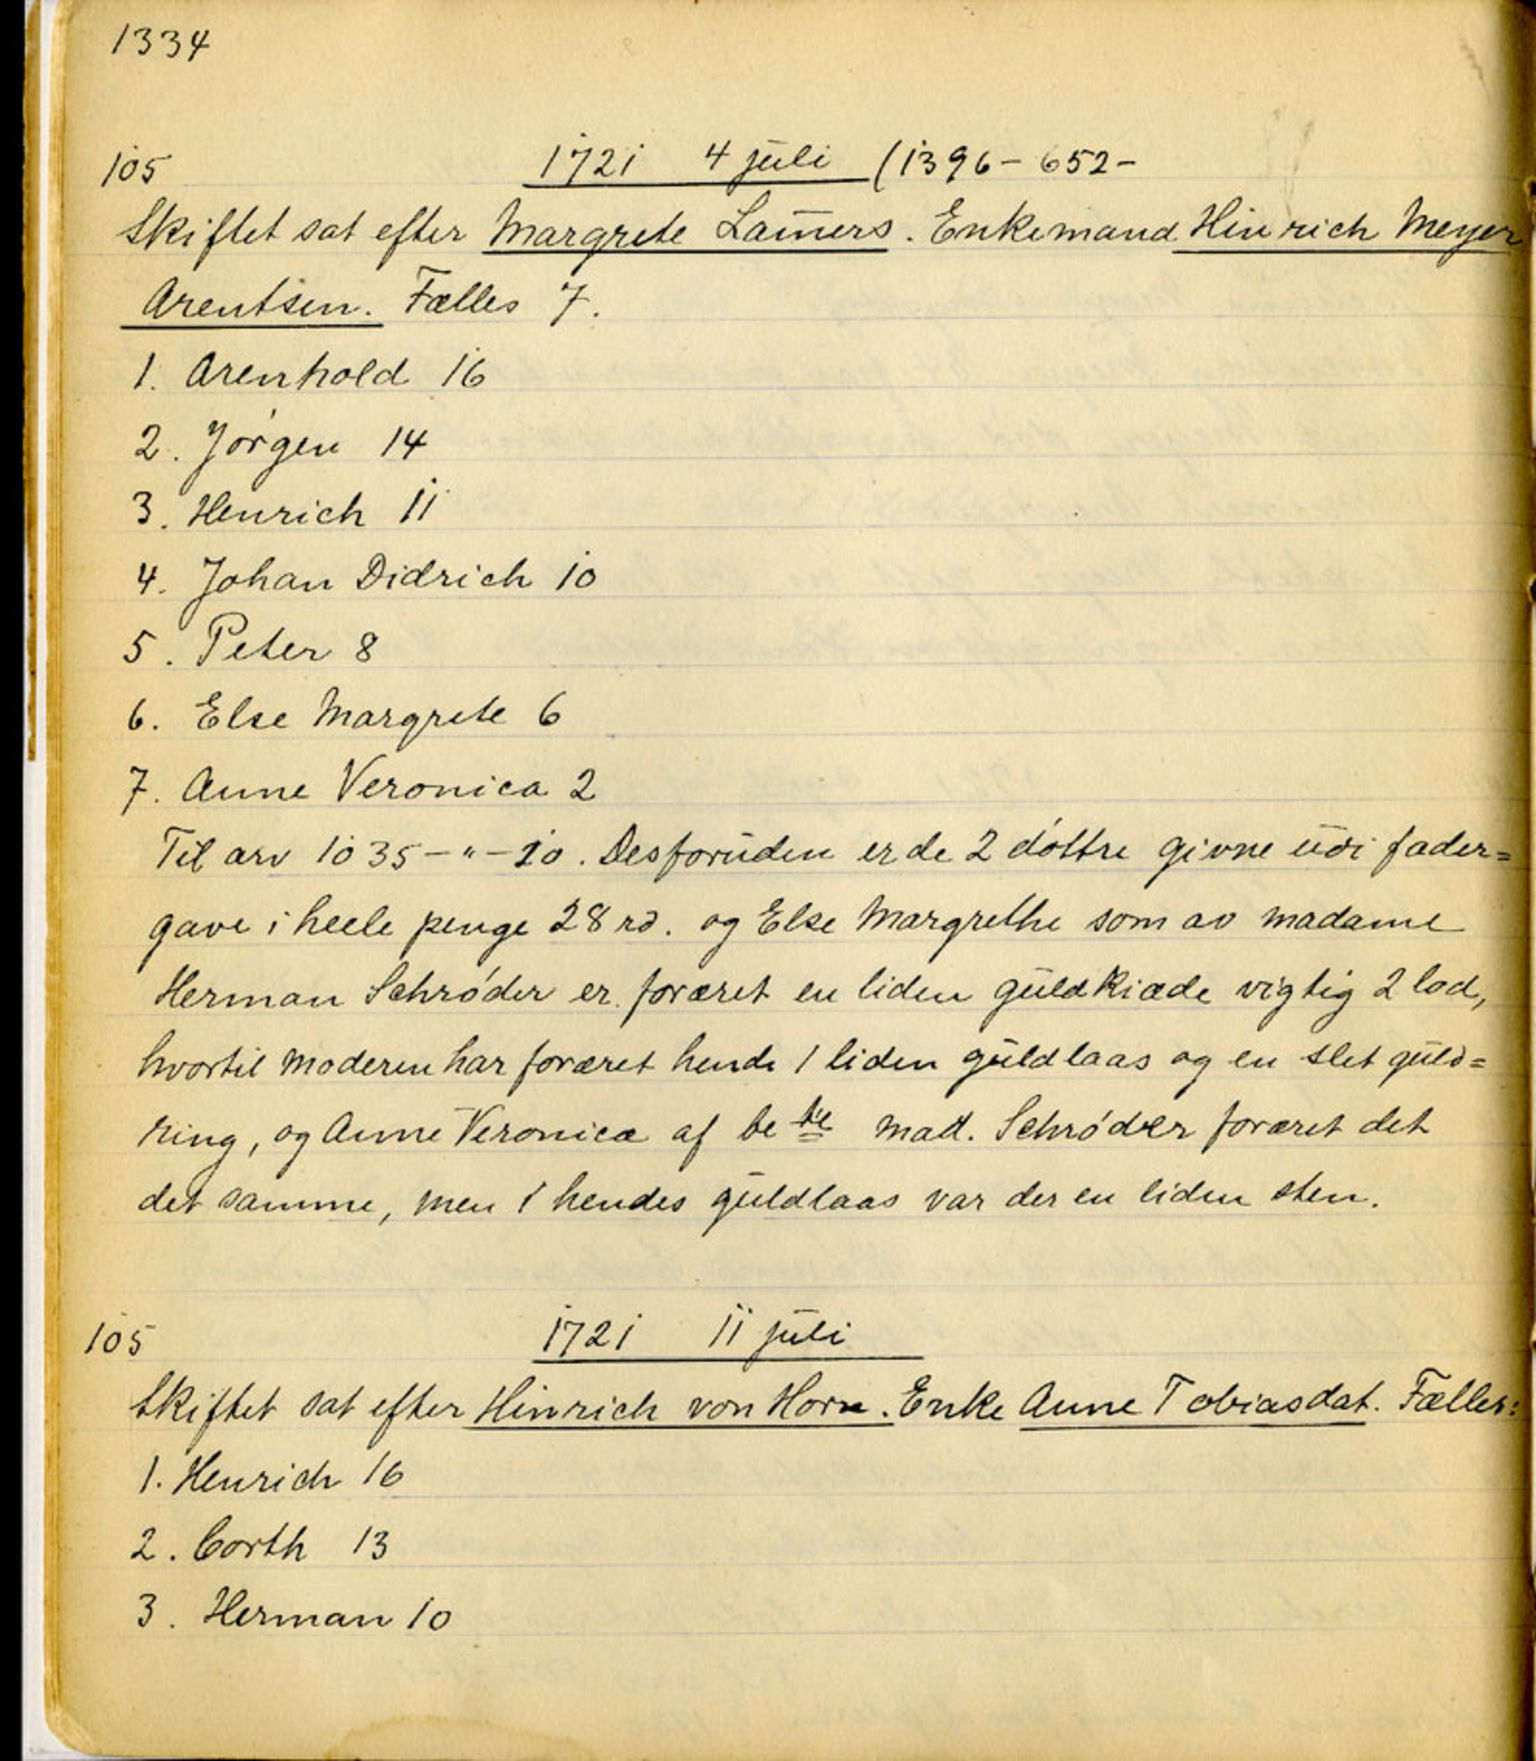 1334
105 1721 4 juli (1396-652-
Skiftet sat efter Margrete Lam̄ers. Enkemand Hinrich Meyer
Arentsen. Fælles 7.
1. Arenhold 16
2. Jørgen 14
3. Henrich 11
4. Johan Didrich 10
5. Peter 8
6. Else Margrete 6
7. Anne Veronica 2
Til arv 1035-"-10. Desforuden er de 2 døttre givne udi fader=
gave i heele penge 28 rd. og Else Margrethe som av madame
Herman Schrøder er foræret en liden guldkiæde vigtig 2 lod,
hvortil moderen har foræret hende 1 liden guldlaas og en slet guld=
ring, og Anne Veronica af be te mad. Schrøder foræret det
det samme, men i hendes guldlaas var der en liden sten.
105 1721 11 juli
Skiftet sat efter Hinrich von Horn. Enke Anne Tobiasdat. Fælles:
1. Henrich 16
2. Corth 13
3. Herman 10